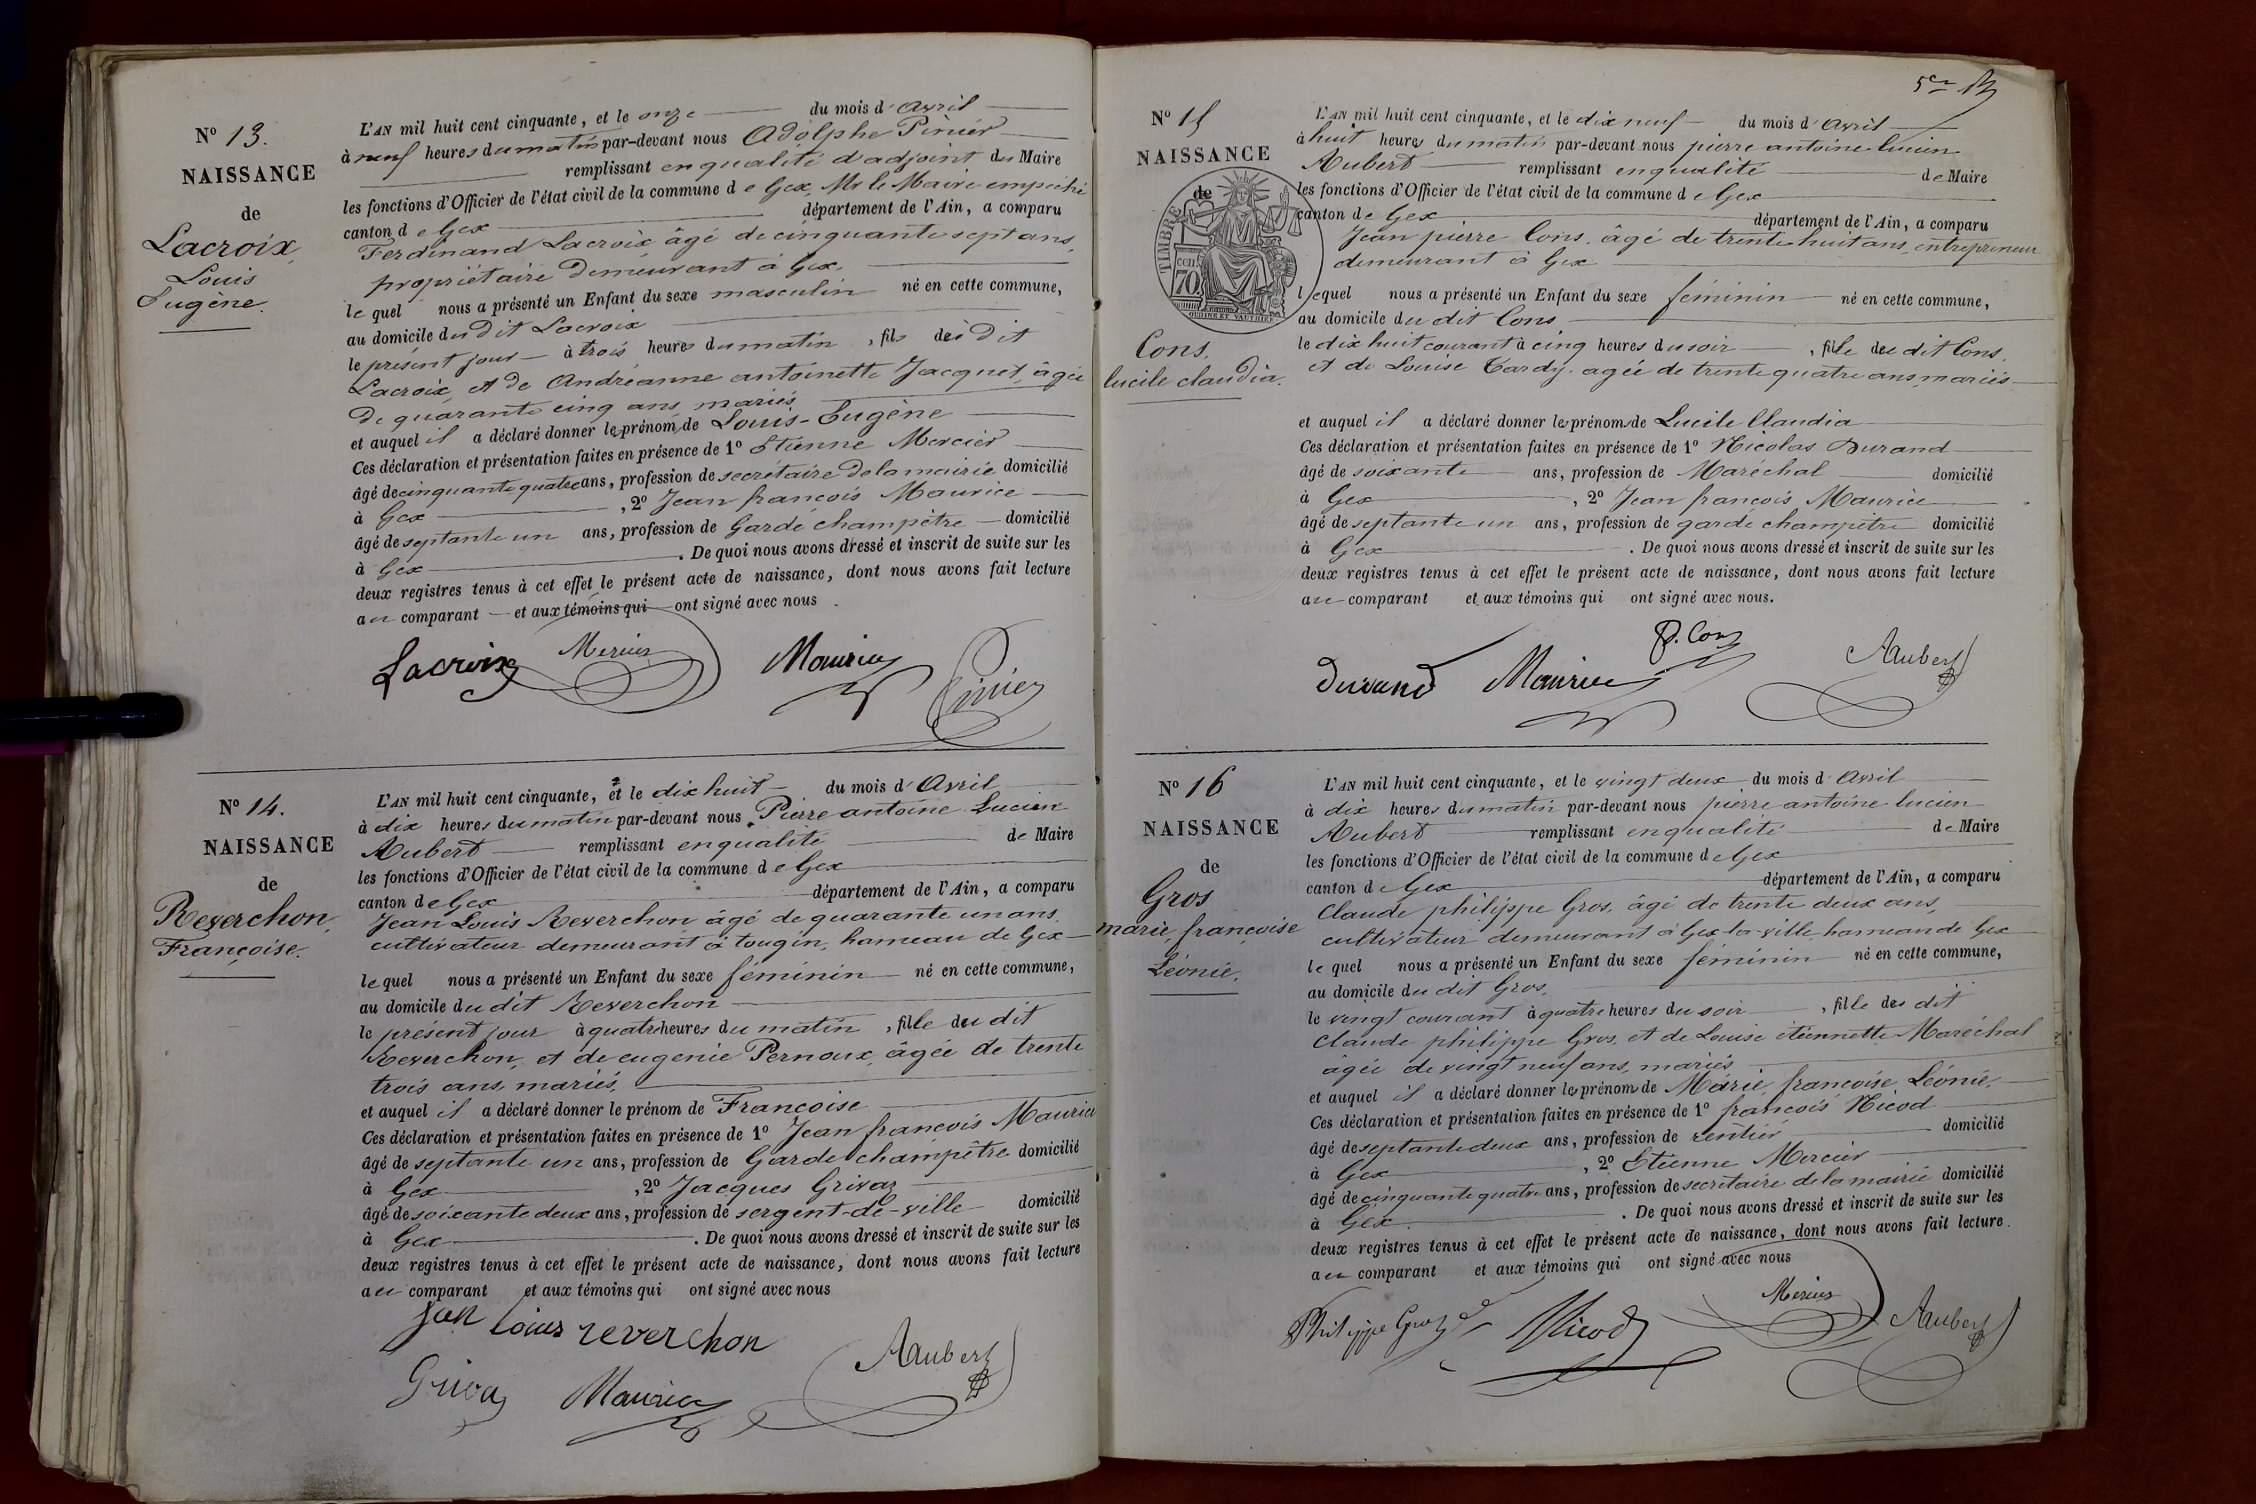 N° 13.
NAISSANCE
de
Lacroix,
Louis
Eugène.
L'AN mil huit cent cinquante, et le onze du mois d'Avril
à neuf heures du matin par-devant nous Adolphe Pinier
remplissant en qualité d'adjoint du Maire
les fonctions d'Officier de l'état civil de la commune de Gex, Mr le Maire empêché
canton de Gex département de l'Ain, a comparu
Ferdinand Lacroix, âgé de cinquante sept ans,
propriétaire demeurant à Gex,
lequel nous a présenté un Enfant du sexe masculin né en cette commune,
au domicile du dit Lacroix
le présent jour à trois heures du matin, fils du dit
Lacroix, et de Andréanne antoinette Jacquet, âgée
de quarante cinq ans, mariés,
et auquel il a déclaré donner les prénoms de Louis-Eugène
Ces déclaration et présentation faites en présence de 1° Etienne Mercier
âgé de cinquante quatre ans, profession de secrétaire de la mairie domicilié
à Gex, 2° Jean françois Maurice
âgé de septante un ans, profession de Garde champêtre domicilié
à Gex. De quoi nous avons dressé et inscrit de suite sur les
deux registres tenus à cet effet le présent acte de naissance, dont nous avons fait lecture
au comparant et aux témoins qui ont signé avec nous.
Lacroix Mercier Maurice Pinier
N° 14.
NAISSANCE
de
Reverchon,
Françoise.
L'AN mil huit cent cinquante, et le dix huit du mois d'Avril
à dix heures du matin par-devant nous Pierre antoine Lucien
Aubert remplissant en qualité de Maire
les fonctions d'Officier de l'état civil de la commune de Gex
canton de Gex département de l'Ain, a comparu
Jean Louis Reverchon âgé de quarante un ans,
cultivateur demeurant à tougin, hameau de Gex
lequel nous a présenté un Enfant du sexe féminin né en cette commune,
au domicile du dit Reverchon
le présent jour à quatre heures du matin, fille du dit
Reverchon, et de eugenie Pernoux, âgée de trente
trois ans, mariés,
et auquel il a déclaré donner le prénom de Françoise
Ces déclaration et présentation faites en présence de 1° Jean françois Maurice
âgé de septante un ans, profession de Garde champêtre domicilié
à Gex, 2° Jacques Grivaz
âgé de soixante deux ans, profession de sergent-de-ville domicilié
à Gex. De quoi nous avons dressé et inscrit de suite sur les
deux registres tenus à cet effet le présent acte de naissance, dont nous avons fait lecture
au comparant et aux témoins qui ont signé avec nous
jean Louis reverchon
Grivaz Maurice Aubert
N° 15
NAISSANCE
de
TIMBRE
CENT.
70
OUDINÉ ET VAUTHIER
Cons,
lucile claudia.
L'AN mil huit cent cinquante, et le dix neuf du mois d'Avril
à huit heures du matin par-devant nous pierre antoine lucien
Aubert remplissant en qualité de Maire
les fonctions d'Officier de l'état civil de la commune de Gex
canton de Gex département de l'Ain, a comparu
Jean pierre Cons, âgé de trente huit ans, entrepreneur
demeurant à Gex
lequel nous a présenté un Enfant du sexe féminin né en cette commune,
au domicile du dit Cons
le dix huit courant à cinq heures du soir, fille du dit Cons,
et de Louise Tardy, agée de trente quatre ans, mariés
et auquel il a déclaré donner les prénoms de Lucile Claudia
Ces déclaration et présentation faites en présence de 1° Nicolas Durand
âgé de soixante ans, profession de Maréchal domicilié
à Gex, 2° Jean françois Maurice
âgé de septante un ans, profession de garde champêtre domicilié
à Gex. De quoi nous avons dressé et inscrit de suite sur les
deux registres tenus à cet effet le présent acte de naissance, dont nous avons fait lecture
au comparant et aux témoins qui ont signé avec nous.
P. Cons
Durand Maurice Aubert
N° 16
NAISSANCE
de
Gros
marie, françoise
Léonie.
L'AN mil huit cent cinquante, et le vingt deux du mois d'Avril
à dix heures du matin par-devant nous pierre antoine lucien
Aubert remplissant en qualité de Maire
les fonctions d'Officier de l'état civil de la commune de Gex
canton de Gex département de l'Ain, a comparu
Claude philippe Gros, âgé de trente deux ans,
cultivateur demeurant à Gex-la-ville hameau de Gex
lequel nous a présenté un Enfant du sexe féminin né en cette commune,
au domicile du dit Gros,
le vingt courant à quatre heures du soir, fille du dit
Claude philippe Gros, et de Louise étiennette Maréchal
âgée de vingt neuf ans, mariés
et auquel il a déclaré donner les prénoms de Marie, françoise, Léonie,
Ces déclaration et présentation faites en présence de 1° françois Nicod
âgé de septante deux ans, profession de rentier domicilié
à Gex, 2° Etienne Mercier
âgé de cinquante quatre ans, profession de secrétaire de la mairie domicilié
à Gex. De quoi nous avons dressé et inscrit de suite sur les
deux registres tenus à cet effet le présent acte de naissance, dont nous avons fait lecture
au comparant et aux témoins qui ont signé avec nous
Philippe Gros Nicod Mercier Aubert